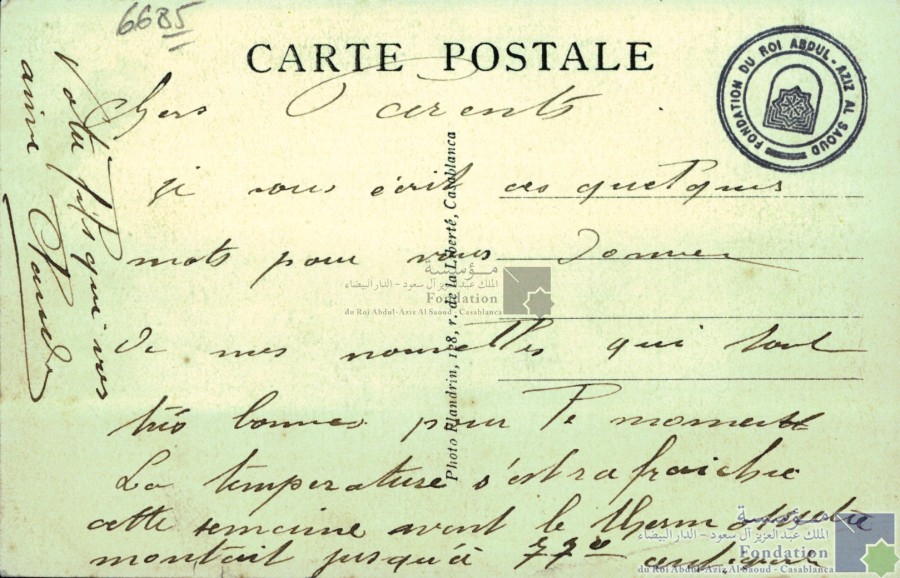 6685
CARTE POSTALE
FONDATION DU ROI ABDUL-AZIZ AL SAOUD
Chers Parents
je vous écrit ces quelques
mots pour vous donner
de mes nouvelles qui sont
très bonnes pour le moment
La température s'est rafraichie
cette semaine avant le thermomètre
montait jusqu'à
Votre fils qui vos
aime
Photo Flandrin, 128, r. de la Liberté, Casablanca
مؤسسة
الملك عبد العزيز آل سعود - الدار البيضاء
Fondation
du Roi Abdul-Aziz Al Saoud - Casablanca
مؤسسة
الملك عبد العزيز آل سعود - الدار البيضاء
Fondation
du Roi Abdul-Aziz Al Saoud - Casablanca